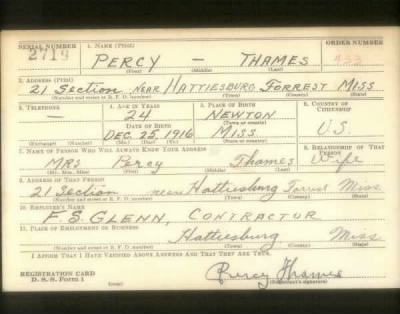 SERIAL NUMBER 1. NAME (Print) ORDER NUMBER
2719 PERCY — THAMES 433
(First) (Middle) (Last)
2. ADDRESS (Print)
21 Section near Hattiesburg Forrest Miss
(Number and street or R. F. D. number) (Town) (County) (State)
3. TELEPHONE 4. AGE IN YEARS 5. PLACE OF BIRTH 6. COUNTRY OF CITIZENSHIP
— 24 Newton
DATE OF BIRTH (Town or county)
Dec 25, 1916 Miss. U.S.
(Exchange) (Number) (Mo.) (Day) (Yr.) (State or country)
7. NAME OF PERSON WHO WILL ALWAYS KNOW YOUR ADDRESS 8. RELATIONSHIP OF THAT PERSON
Mrs Percy Thames Wife
(Mr., Mrs., Miss) (First) (Middle) (Last)
9. ADDRESS OF THAT PERSON
21 Section near Hattiesburg Forrest Miss.
(Number and street or R. F. D. number) (Town) (County) (State)
10. EMPLOYER'S NAME
F.S. Glenn, Contractor
11. PLACE OF EMPLOYMENT OR BUSINESS
Hattiesburg Miss
(Number and street or R. F. D. number) (Town) (County) (State)
I AFFIRM THAT I HAVE VERIFIED ABOVE ANSWERS AND THAT THEY ARE TRUE.
REGISTRATION CARD
D. S. S. Form 1
Percy Thames
(Registrant's signature)